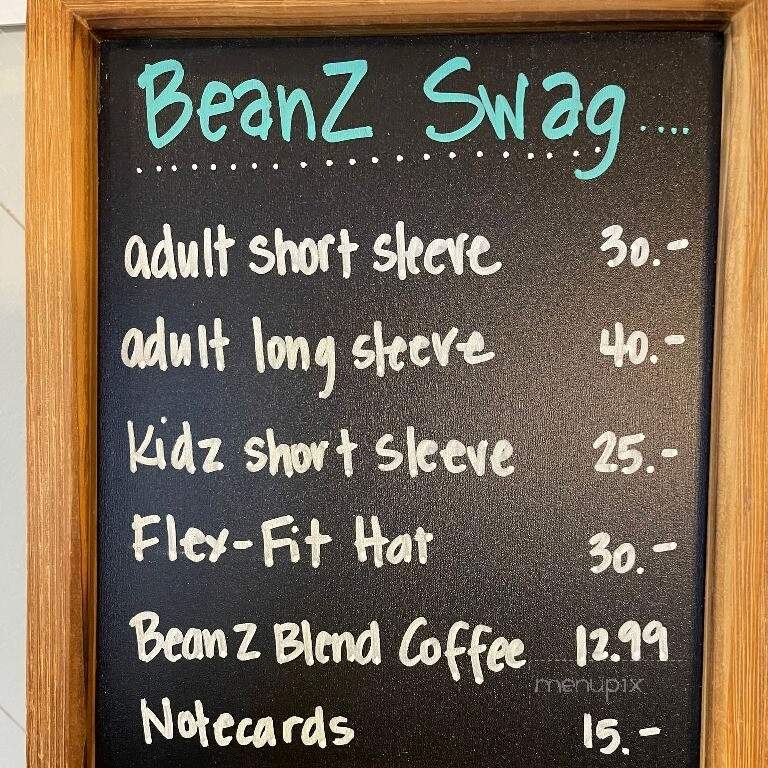 BeanZ Swag....
adult short sleeve 30.-
adult long sleeve 40.-
Kidz short sleeve 25.-
Flex-Fit Hat 30.-
BeanZ Blend Coffee 12.99
menupix
Notecards 15.-